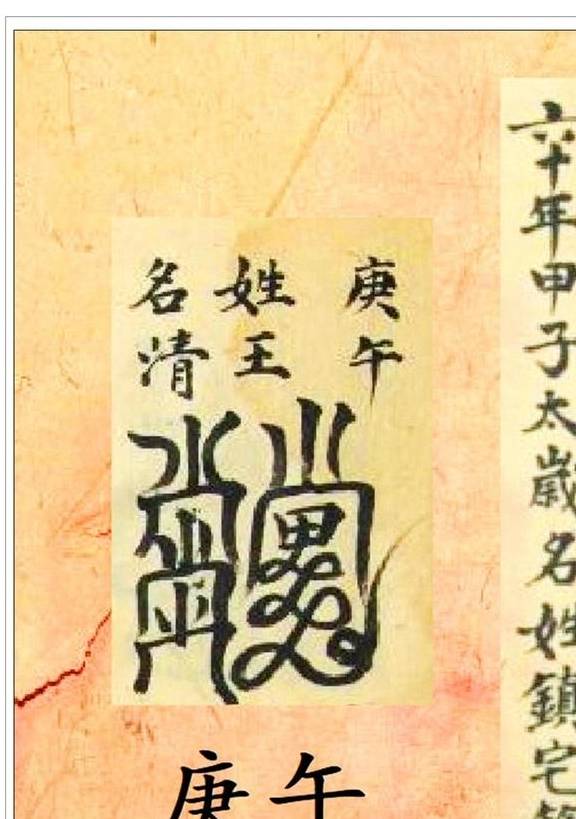 六十年甲子太歳名姓鎮宅
庚午
姓王
名清
庚午